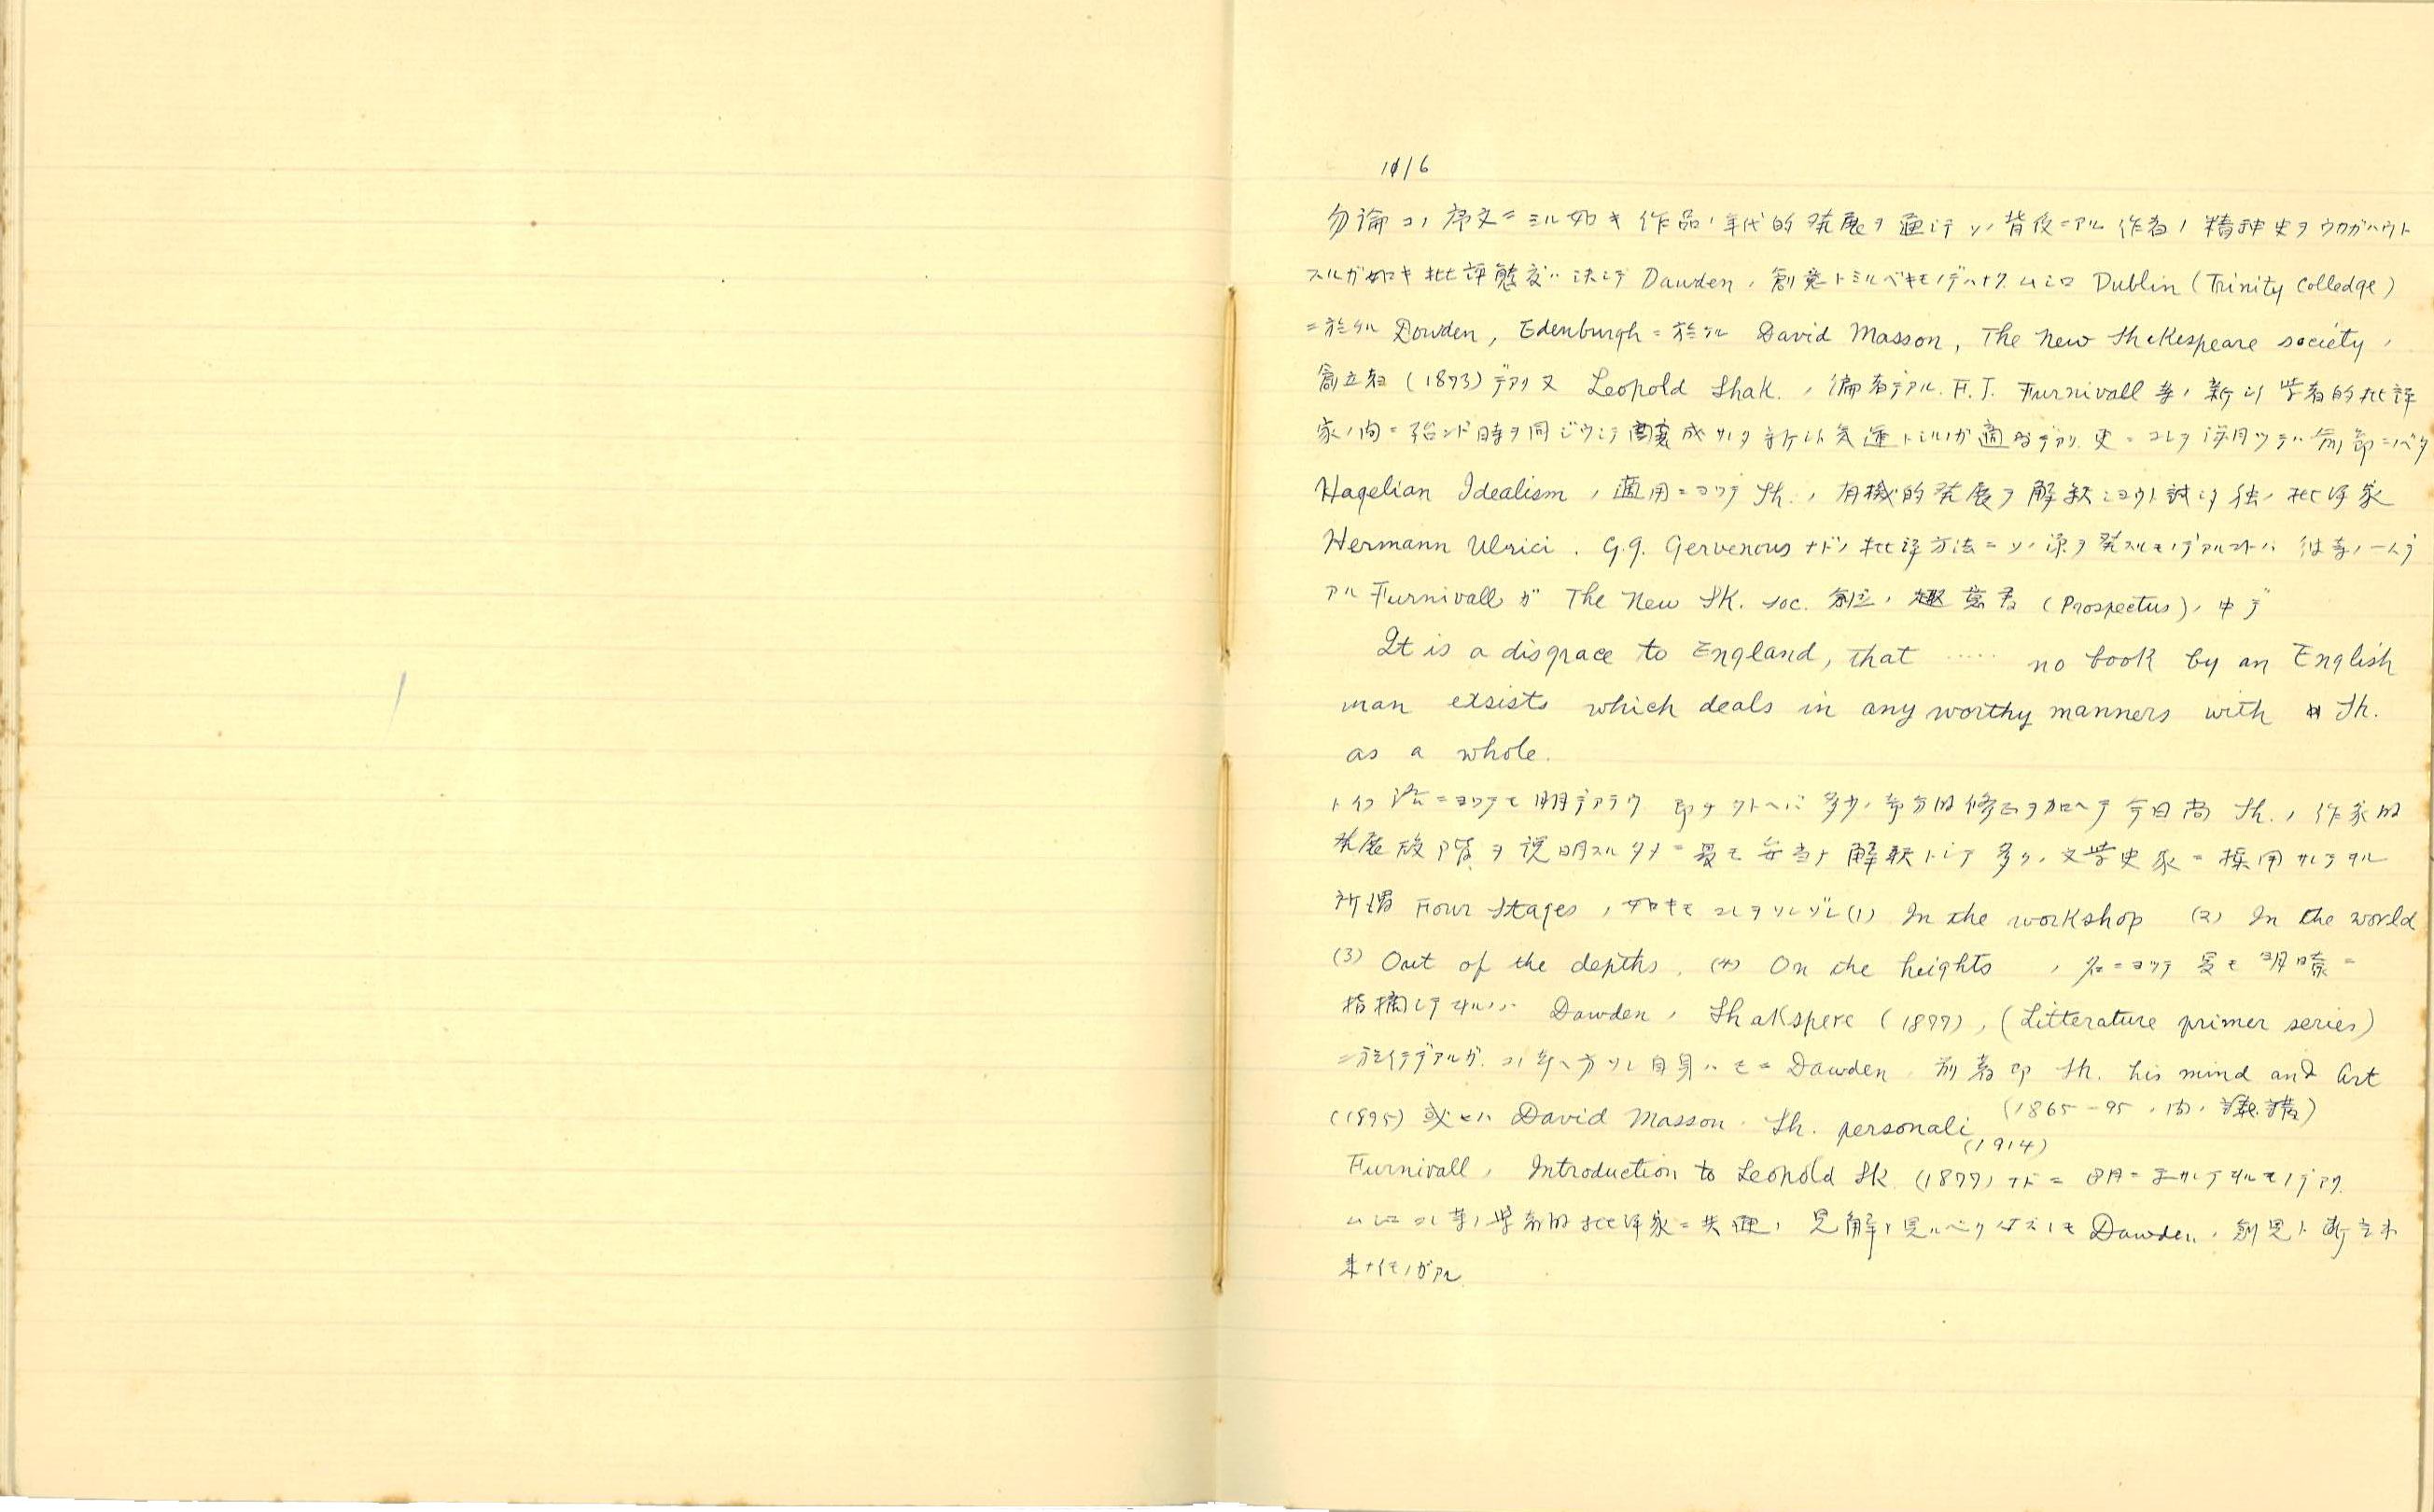 10/6
勿論コノ序文ニミル如キ作品ノ年代的発展ヲ通シテソノ背後ニアル作者ノ精神史ヲウカガハウト
スルガ如キ批評態度ハ決シテ Dawden ノ創意トミルベキモノデハナク ムシロ Dublin (Trinity Colledge)
ニ於ケル Dowden, Edenburgh ニ於ケル David Masson, The New Shakespeare society ノ
創立者 (1873) デアリ又 Leopold Shak. ノ編者デアル F. J. Furnivall 等ノ新シイ学者的批評
家ノ間ニ殆ンド時ヲ同ジウシテ醸成サレタ新シイ気運トミルノガ適当デアリ 更ニコレヲ遡ツテハ前節ニノベタ
Hagelian Idealism ノ適用ニヨツテ Sh. ノ有機的発展ヲ解釈シヨウト試ミタ独ノ批評家
Hermann Ulrici . G. g. Gervenous ナドノ批評方法ニソノ源ヲ発スルモノデアルコトハ 彼等ノ一人デ
アル Furnivall ガ The New SK. soc. 創立ノ趣意書 (Prospectus) ノ中デ
It is a disgrace to England, that ..... no book by an English
man exsists which deals in any worthy manners with Sh.
as a whole.
トイフ ニヨツテモ明デアラウ 即チ 多少ノ部分的修正ヲ加ヘテ今日尚 Sh. ノ作家的
発展段階ヲ説明スルタメニ最モ妥当ナ解釈トシテ多クノ文学史家ニ採用サレテヰル
所謂 Four Stages ノ如キモコレヲソレゾレ (1) In the workshop (2) In the world
(3) Out of the depths. (4) On the heights ノ名ニヨツテ最モ明瞭ニ
指摘シテヰルノハ Dawden ノ Shakspere (1877), (Litterature primer series)
ニ於イテデアルガ コノ考ヘ方ソレ自身ハ Dawden ノ前著 Sh. his mind and Art
(1875) 或ヒハ David Masson Sh. personali (1865-95 ノ間ノ講義) (1914)
Furnivall ノ Introduction to Leopold Sk (1877) ナドニ 既ニ サレテヰルモノデアリ
ムシロコレ等ノ学者的批評家ニ共通ノ見解ト見ルベク 必ズシモ Dawden ノ創見ト断言出
来ナイモノガアル